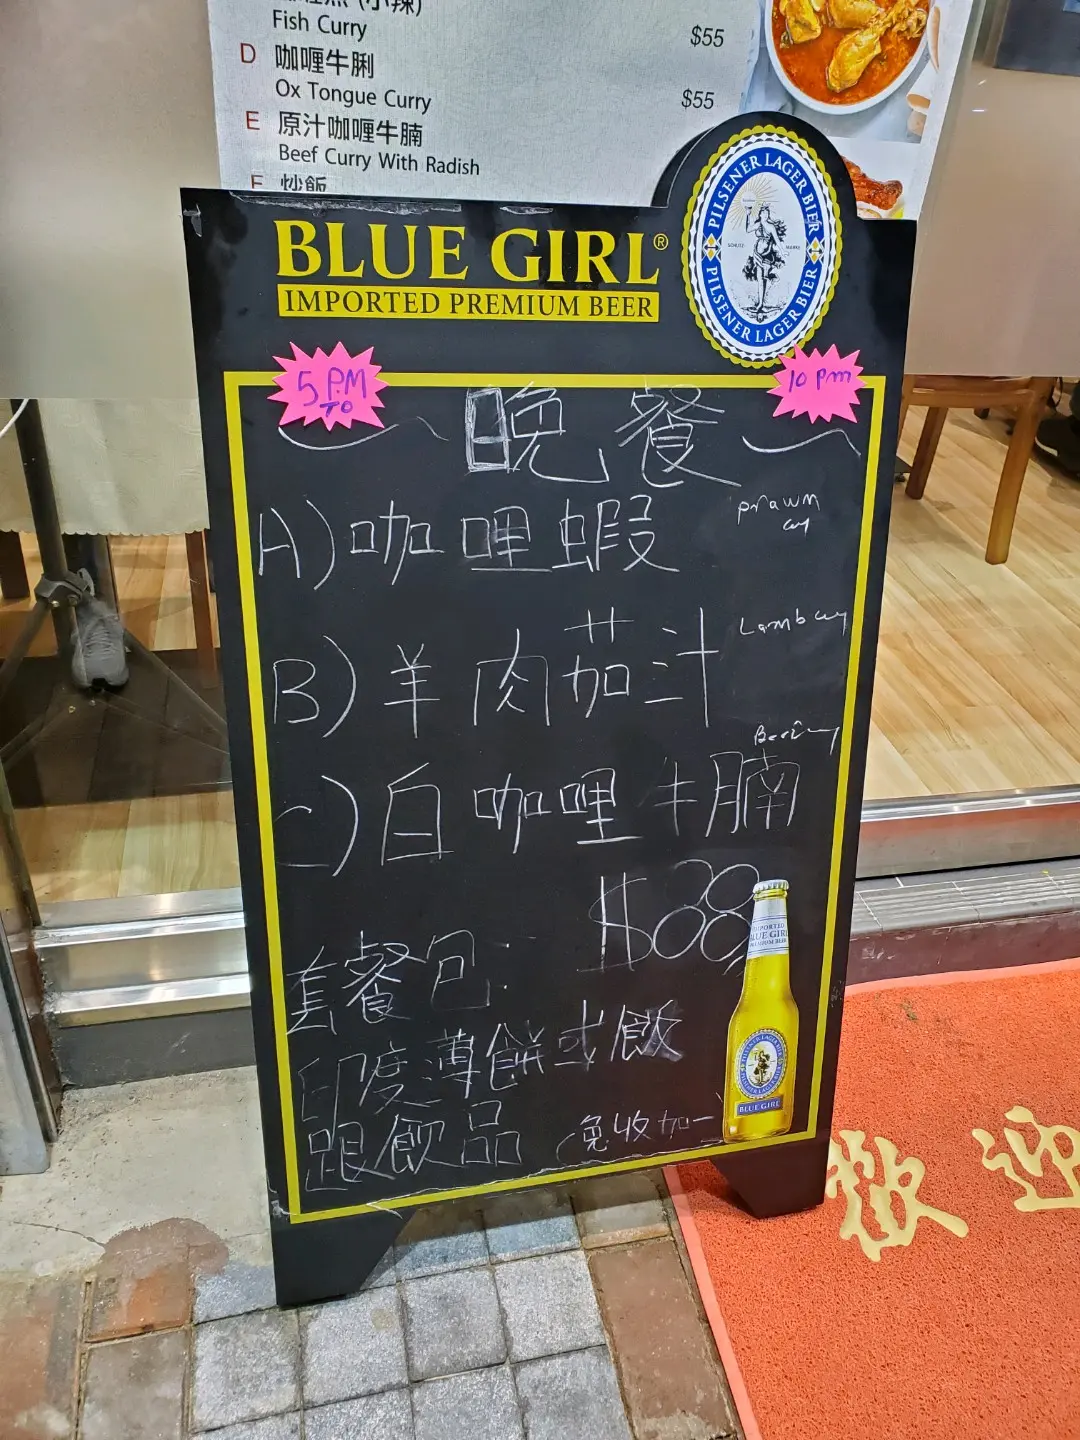 Fish Curry
$55
D 咖喱牛脷
Ox Tongue Curry
$55
E 原汁咖喱牛腩
Beef Curry With Radish
F 炒飯
BLUE GIRL®
IMPORTED PREMIUM BEER
PILSENER LAGER BIER
PILSENER LAGER BIER
5 P.M TO
10 pm
晚餐
A) 咖哩蝦
prawn
B) 羊肉茄汁
Lamb
C) 白咖哩牛腩
套餐包:
印度薄餅或飯
跟飲品
免收加一
IMPORTED
BLUE GIRL
PREMIUM BEER
BLUE GIRL
歡迎